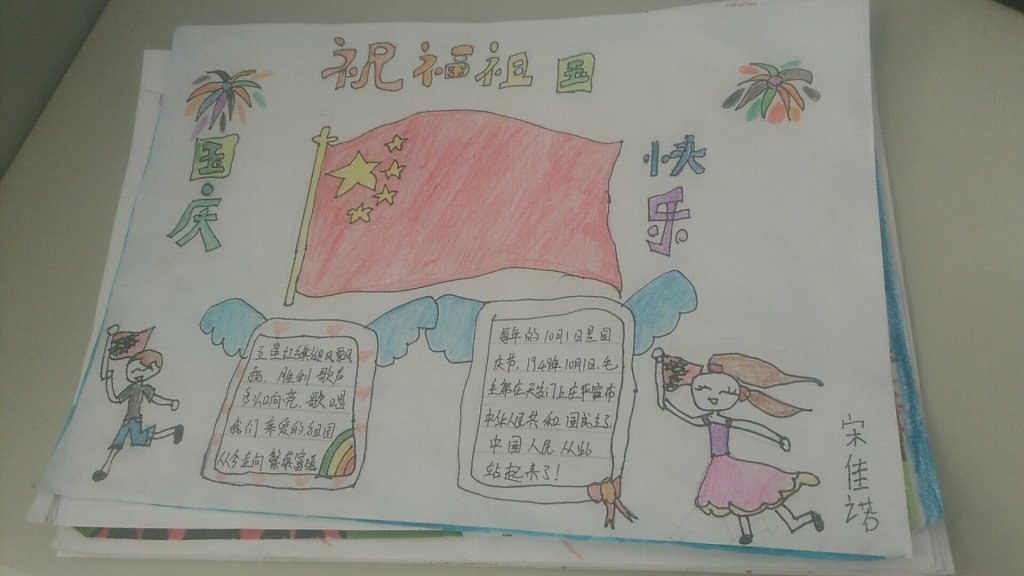 祝福祖国
国庆
快乐
五星红旗迎风飘
扬，胜利歌声
多么响亮，歌唱
我们亲爱的祖国
从今走向繁荣富强
每年的10月1日是国
庆节，1949年10月1日，毛
主席在天安门上庄严宣布
中华人民共和国成立了，
中国人民从此
站起来了！
宋佳诺